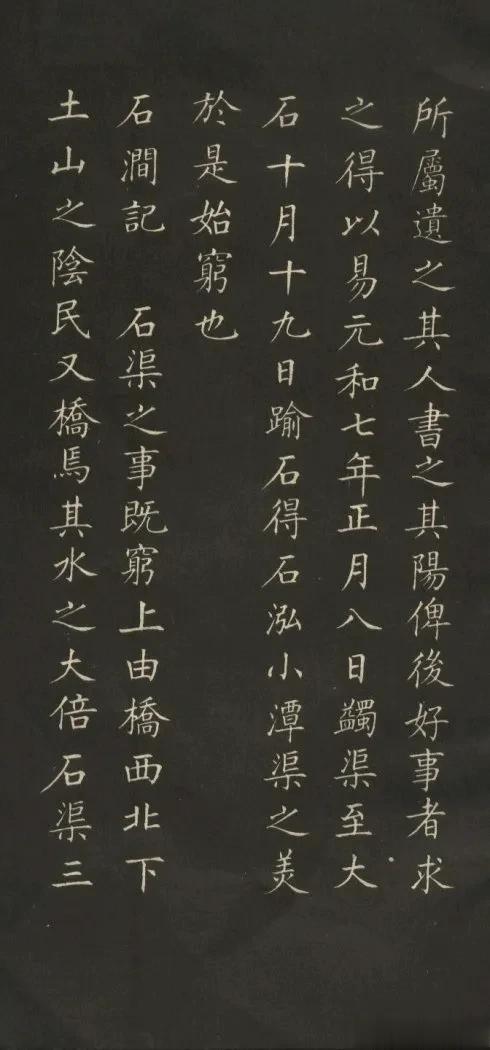 所屬遺之其人書之其陽俾後好事者求
之得以易元和七年正月八日蠲渠至大
石十月十九日踰石得石泓小潭渠之美
於是始窮也
石澗記 石渠之事既窮上由橋西北下
土山之陰民又橋焉其水之大倍石渠三